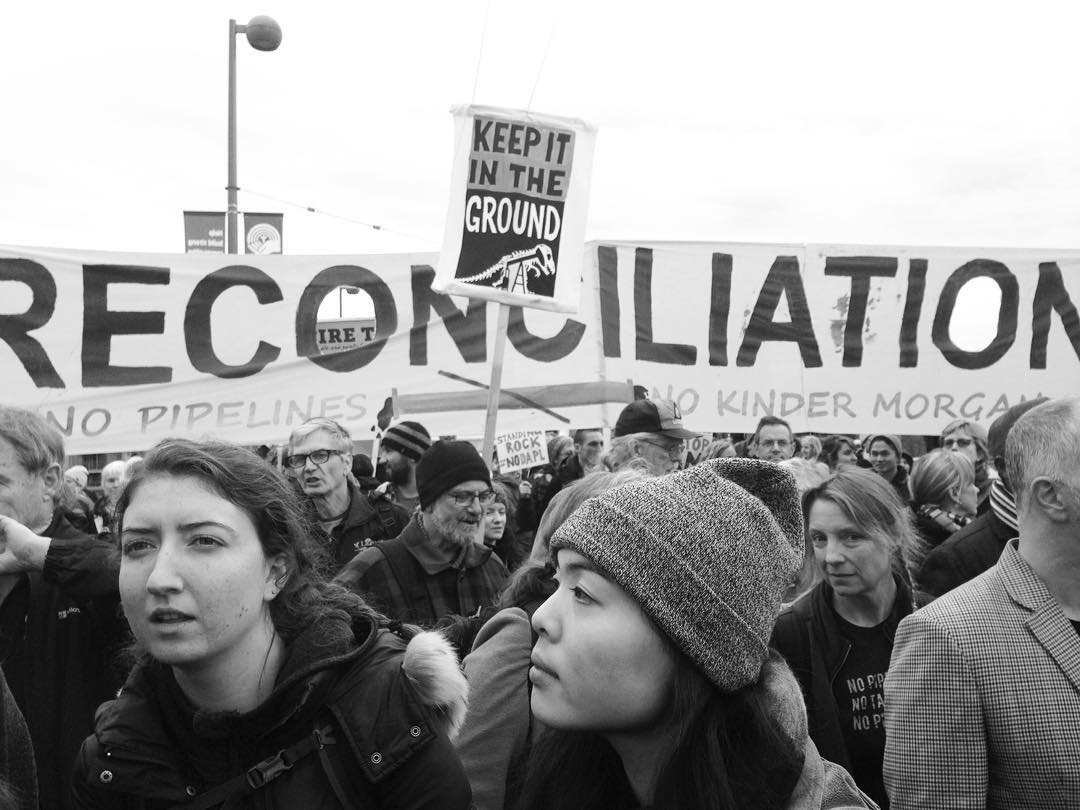 KEEP IT
IN THE
GROUND
RECONCILIATION
IRE T
NO PIPELINES
NO KINDER MORGAN
STANDING
ROCK
#NODAPL
NO PIP
NO TA
NO P